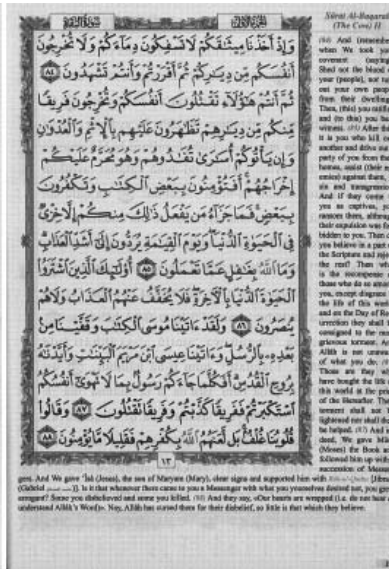 سورة البقرة
الجزء الأول
وَإِذْ أَخَذْنَا مِيثَٰقَكُمْ لَا تَسْفِكُونَ دِمَآءَكُمْ وَلَا تُخْرِجُونَ
أَنفُسَكُم مِّن دِيَٰرِكُمْ ثُمَّ أَقْرَرْتُمْ وَأَنتُمْ تَشْهَدُونَ ٨٤
ثُمَّ أَنتُمْ هَٰٓؤُلَآءِ تَقْتُلُونَ أَنفُسَكُمْ وَتُخْرِجُونَ فَرِيقًا
مِّنكُم مِّن دِيَٰرِهِمْ تَظَٰهَرُونَ عَلَيْهِم بِٱلْإِثْمِ وَٱلْعُدْوَٰنِ
وَإِن يَأْتُوكُمْ أُسَٰرَىٰ تُفَٰدُوهُمْ وَهُوَ مُحَرَّمٌ عَلَيْكُمْ
إِخْرَاجُهُمْ أَفَتُؤْمِنُونَ بِبَعْضِ ٱلْكِتَٰبِ وَتَكْفُرُونَ
بِبَعْضٍ فَمَا جَزَآءُ مَن يَفْعَلُ ذَٰلِكَ مِنكُمْ إِلَّا خِزْىٌ
فِى ٱلْحَيَوٰةِ ٱلدُّنْيَا وَيَوْمَ ٱلْقِيَٰمَةِ يُرَدُّونَ إِلَىٰٓ أَشَدِّ ٱلْعَذَابِ
وَمَا ٱللَّهُ بِغَٰفِلٍ عَمَّا تَعْمَلُونَ ٨٥ أُو۟لَٰٓئِكَ ٱلَّذِينَ ٱشْتَرَوُا۟
ٱلْحَيَوٰةَ ٱلدُّنْيَا بِٱلْءَاخِرَةِ فَلَا يُخَفَّفُ عَنْهُمُ ٱلْعَذَابُ وَلَا هُمْ
يُنصَرُونَ ٨٦ وَلَقَدْ ءَاتَيْنَا مُوسَى ٱلْكِتَٰبَ وَقَفَّيْنَا مِنۢ
بَعْدِهِۦ بِٱلرُّسُلِ وَءَاتَيْنَا عِيسَى ٱبْنَ مَرْيَمَ ٱلْبَيِّنَٰتِ وَأَيَّدْنَٰهُ
بِرُوحِ ٱلْقُدُسِ أَفَكُلَّمَا جَآءَكُمْ رَسُولٌۢ بِمَا لَا تَهْوَىٰٓ أَنفُسُكُمُ
ٱسْتَكْبَرْتُمْ فَفَرِيقًا كَذَّبْتُمْ وَفَرِيقًا تَقْتُلُونَ ٨٧ وَقَالُوا۟
قُلُوبُنَا غُلْفٌۢ بَل لَّعَنَهُمُ ٱللَّهُ بِكُفْرِهِمْ فَقَلِيلًا مَّا يُؤْمِنُونَ ٨٨
١٣
Sûrat Al-Baqarah
(The Cow) II
(84) And (remember
when We took yo
covenant (saying
Shed not the blood
your (people), nor tu
out your own peop
from their dwelling
Then, (this) you ratifie
and (to this) you be
witness. (85) After thi
it is you who kill o
another and drive out
party of you from the
homes, assist (their e
emies) against them,
sin and transgression
And if they come
you as captives, yo
ransom them, althoug
their expulsion was fo
bidden to you. Then d
you believe in a part
the Scripture and reje
the rest? Then wh
is the recompense
those who do so amon
you, except disgrace
the life of this world
and on the Day of Res
urrection they shall b
consigned to the mo
grievous torment. An
Allâh is not unawa
of what you do. (86)
Those are they wh
have bought the life
this world at the pric
of the Hereafter. The
torment shall not b
lightened nor shall the
be helped. (87) And in
deed, We gave Mûs
(Moses) the Book an
followed him up with
succession of Messe
gers. And We gave ‘Îsâ (Jesus), the son of Maryam (Mary), clear signs and supported him with Rûh-ul-Qudus [Jibra
(Gabriel)]. Is it that whenever there came to you a Messenger with what you yourselves desired not, you grew
arrogant? Some you disbelieved and some you killed. (88) And they say, «Our hearts are wrapped (i.e. do not hear
understand Allâh's Word)». Nay, Allâh has cursed them for their disbelief, so little is that which they believe.